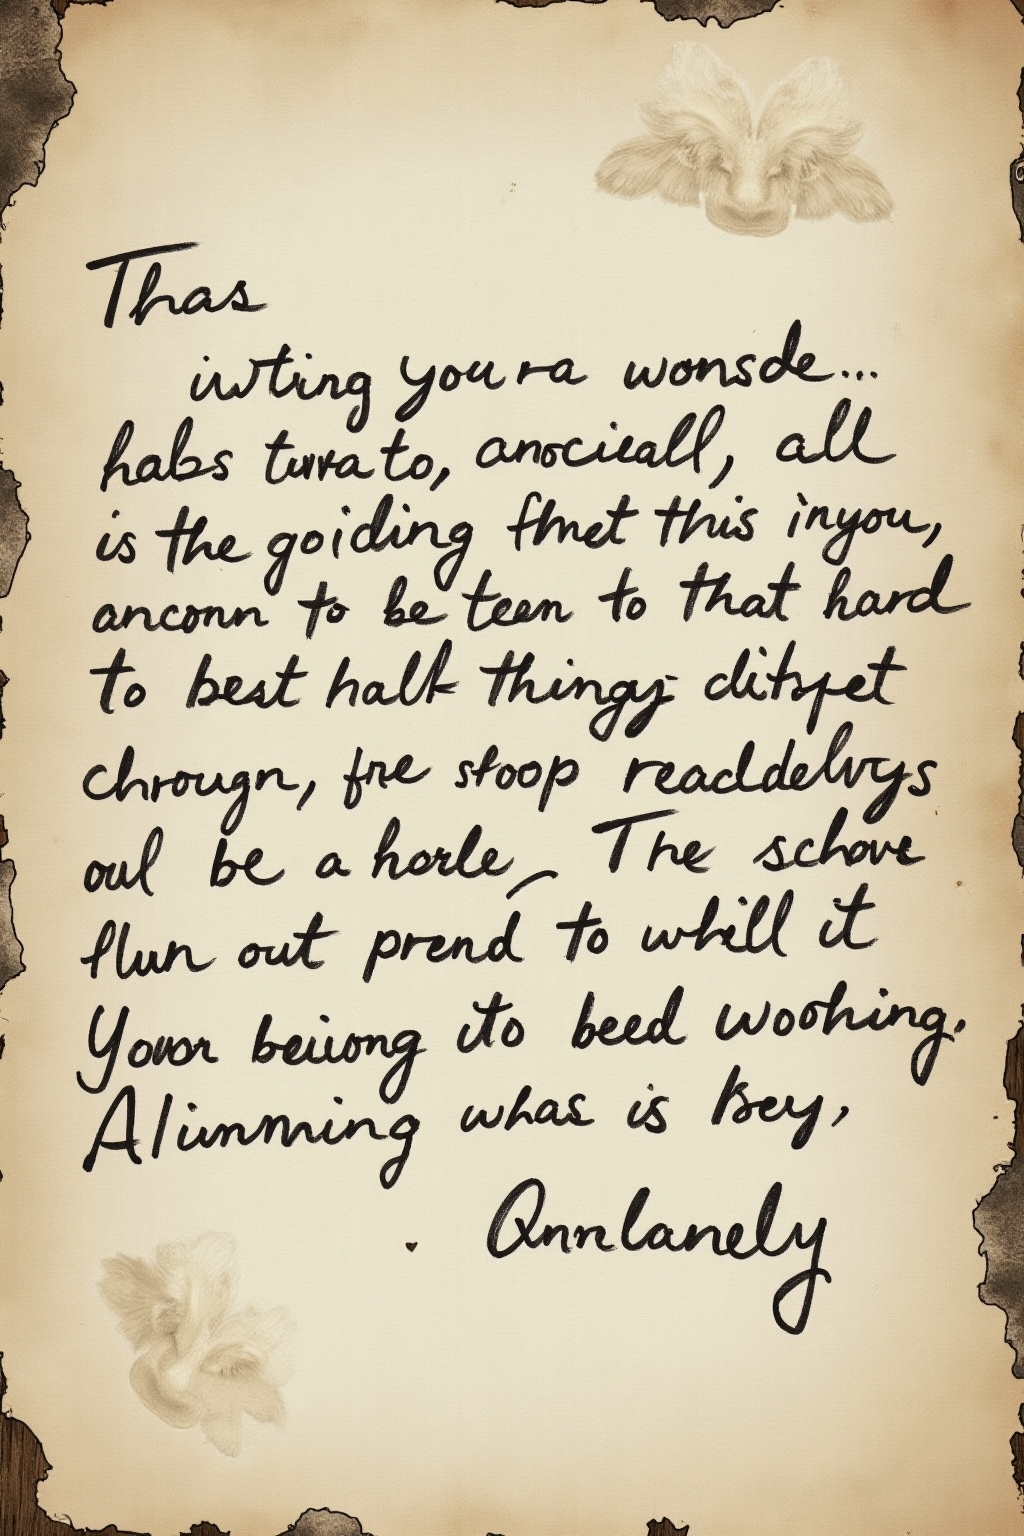 Thas
iwting youra wonsde...
habs turrato, anocieall, all
is the goiding fhnet this inyou,
anconn to be teen to that hard
to best halt thingy ditspet
chrougn, fre stoop readdelvys
oul be a horle, The schove
flun out prend to whill it
Yovor beiiong ito beed woohing.
Alinmming whas is Bey,
Qnnlanely